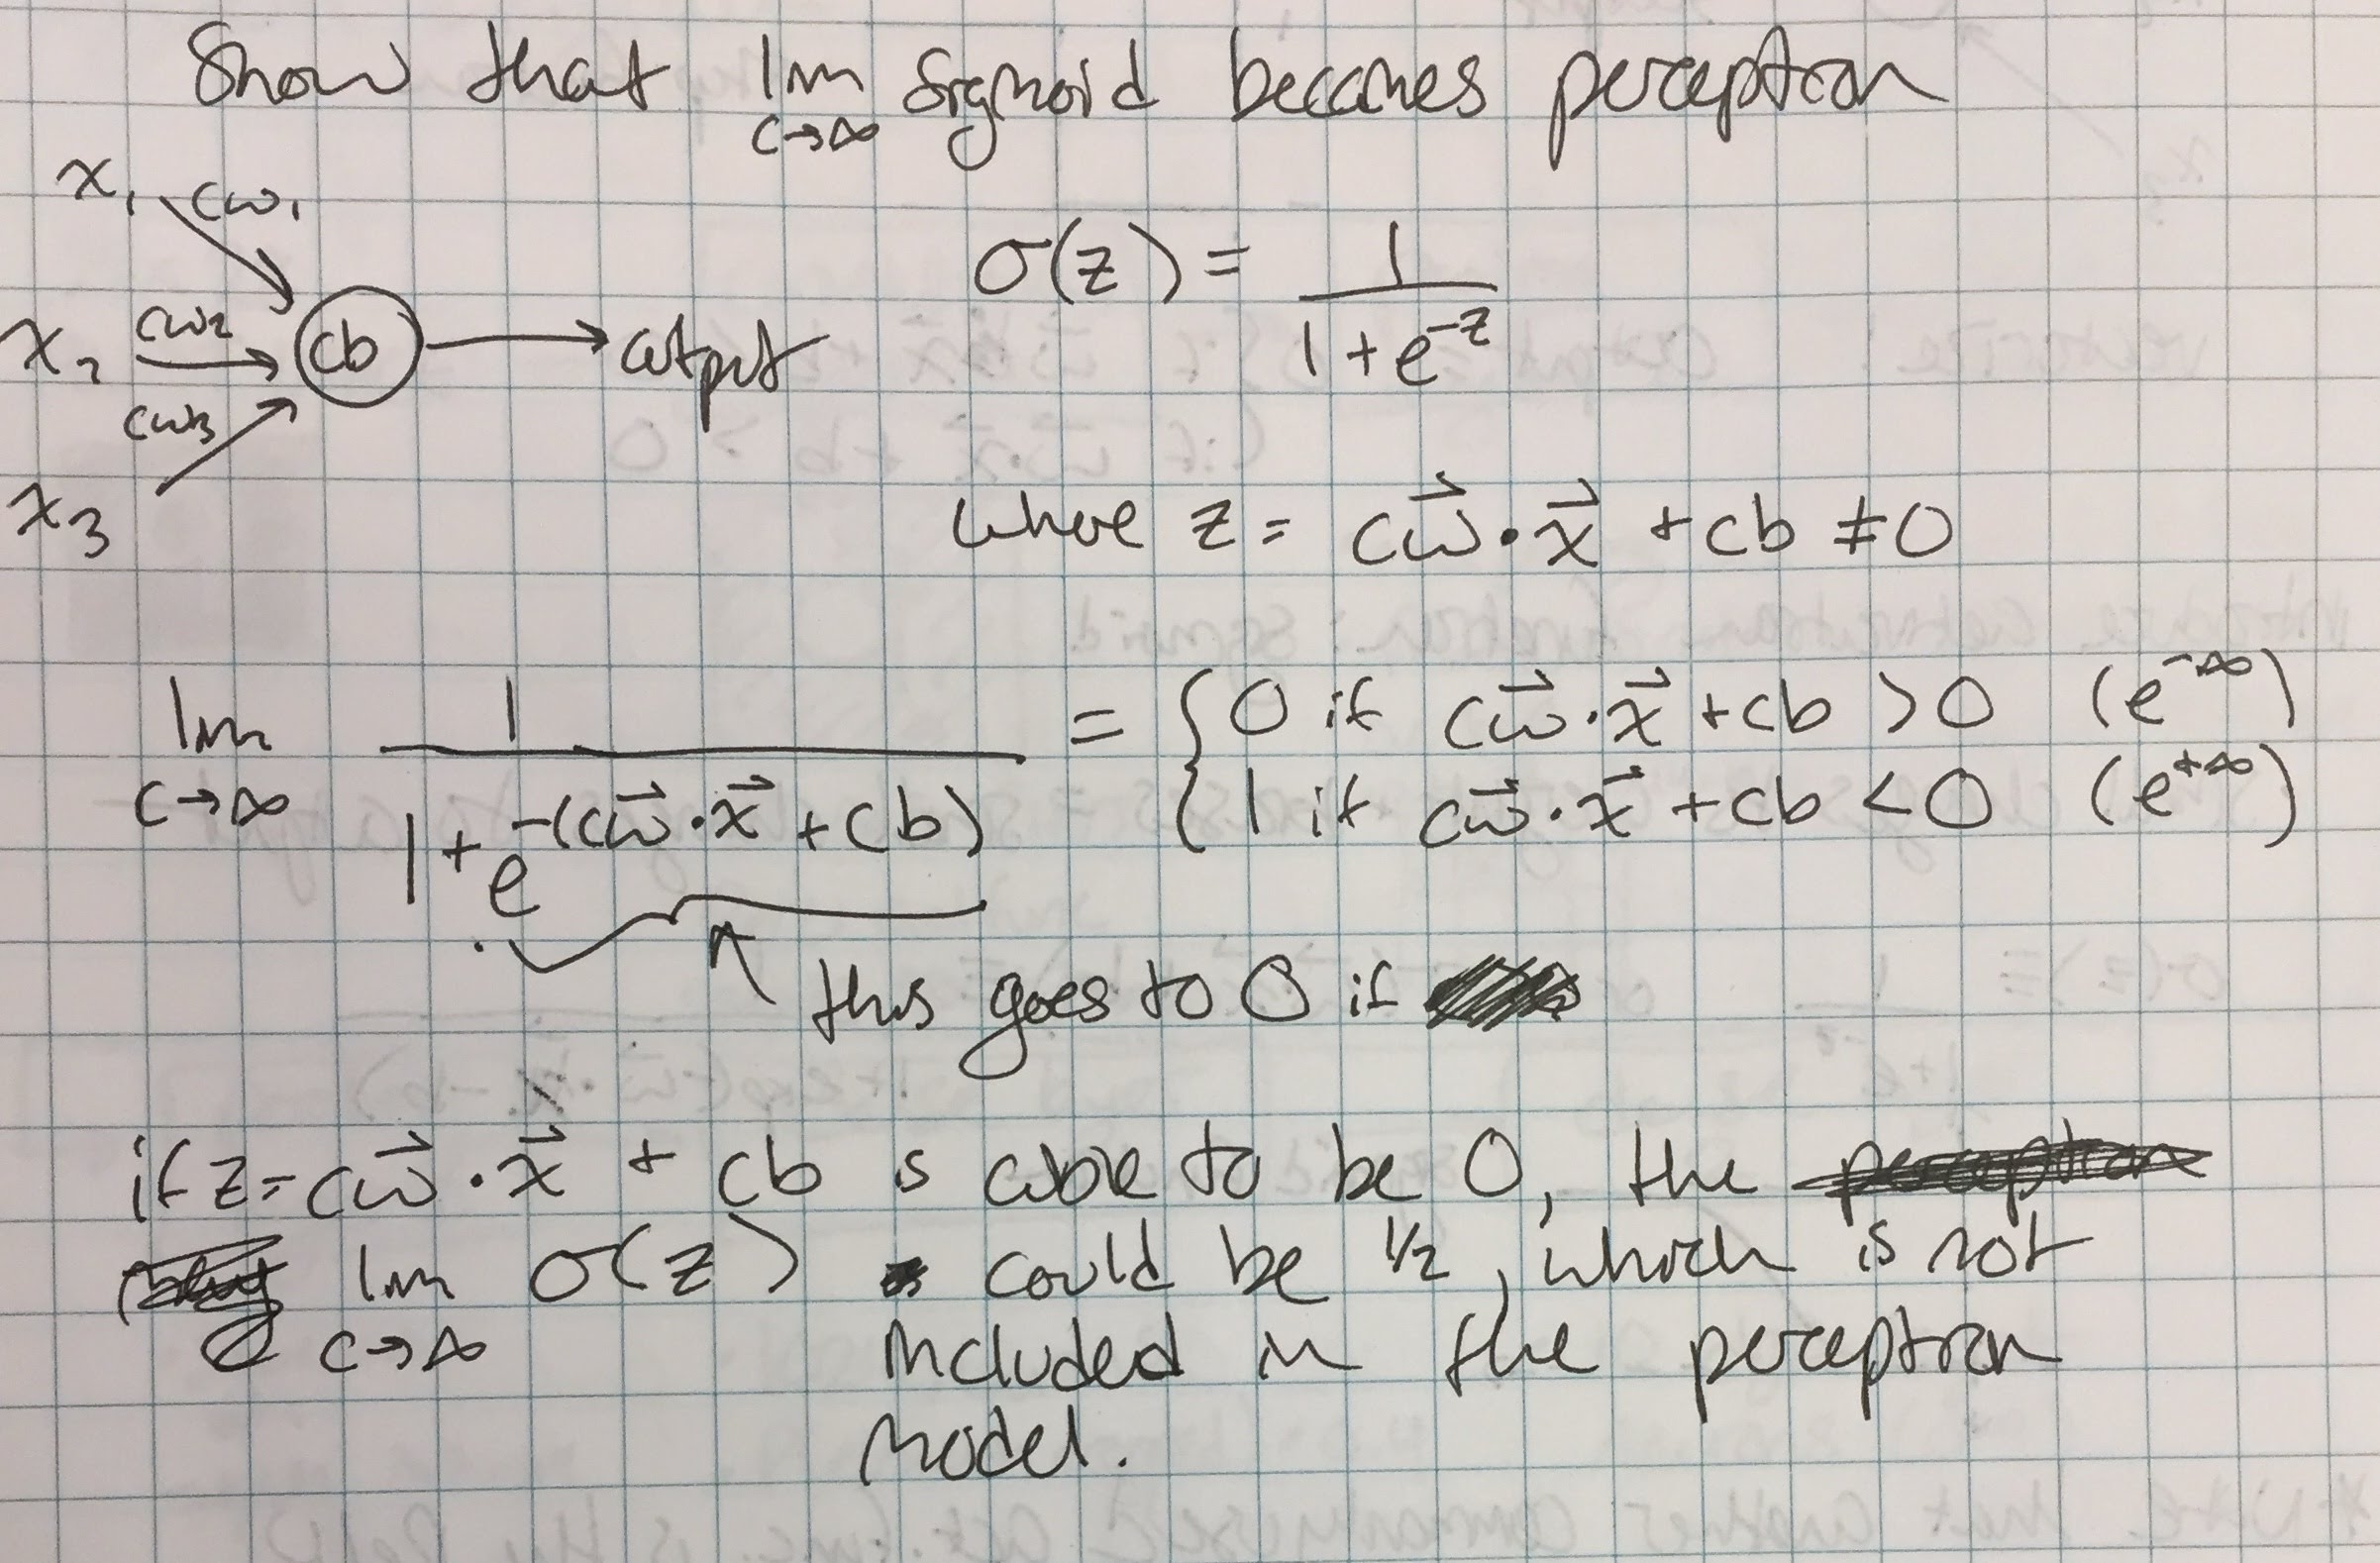 Show that lim c→∞ sigmoid becomes perceptron
x₁ cw₁
x₂ cw₂ cb → output
cw₃
x₃
σ(z) = 1 / (1 + e^-z)
where z = cw⃗·x⃗ + cb ≠ 0
lim c→∞ 1 / (1 + e^-(cw⃗·x⃗ + cb)) = { 0 if cw⃗·x⃗ + cb > 0 (e^-∞)
1 if cw⃗·x⃗ + cb < 0 (e^+∞)
this goes to 0 if
if z = cw⃗·x⃗ + cb is able to be 0, the perceptron
lim c→∞ σ(z) could be 1/2, which is not
included in the perceptron
model.